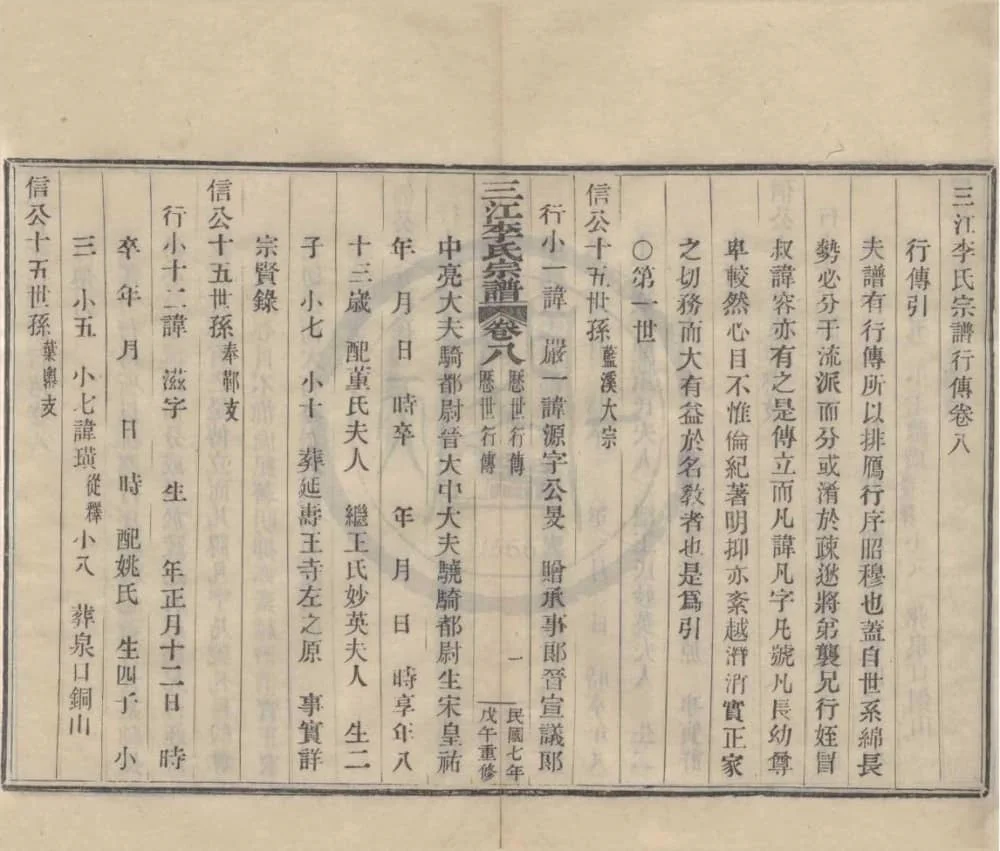 三江李氏宗譜行傳卷八
行傳引
夫譜有行傳所以排鴈行序昭穆也蓋自世系綿長
勢必分于流派而分或淆於疎逖將弟襲兄行姪冒
叔諱容亦有之是傳立而凡諱凡字凡號凡長幼尊
卑較然心目不惟倫紀著明抑亦紊越潛消實正家
之切務而大有益於名教者也是爲引
○第一世
信公十五世孫 藍溪大宗
行小一諱 嚴一諱源字公旻 贈承事郎晉宣議郎
三江李氏宗譜 卷八 歷世行傳 歷世行傳 一 民國七年 戊午重修
中亮大夫騎都尉晉大中大夫驍騎都尉生宋皇祐
年 月 日 時卒 年 月 日 時享年八
十三歲 配董氏夫人 繼王氏妙英夫人 生二
子 小七 小十 葬延壽王寺左之原 事實詳
宗賢錄
信公十五世孫 奉鄞支
行小十二諱 滋字 生 年正月十二日 時
卒 年 月 日 時 配姚氏 生四子 小
三 小五 小七諱璜 從釋 小八 葬泉口銅山
信公十五世孫 葉㠗支